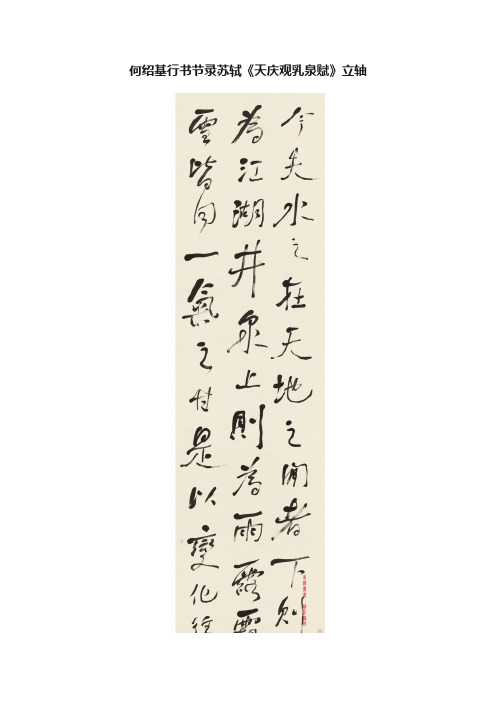 何绍基行书节录苏轼《天庆观乳泉赋》立轴
今夫水之在天地之間者下則
為江湖井泉上則為雨露霜
雪皆同一氣之甘是以變化往